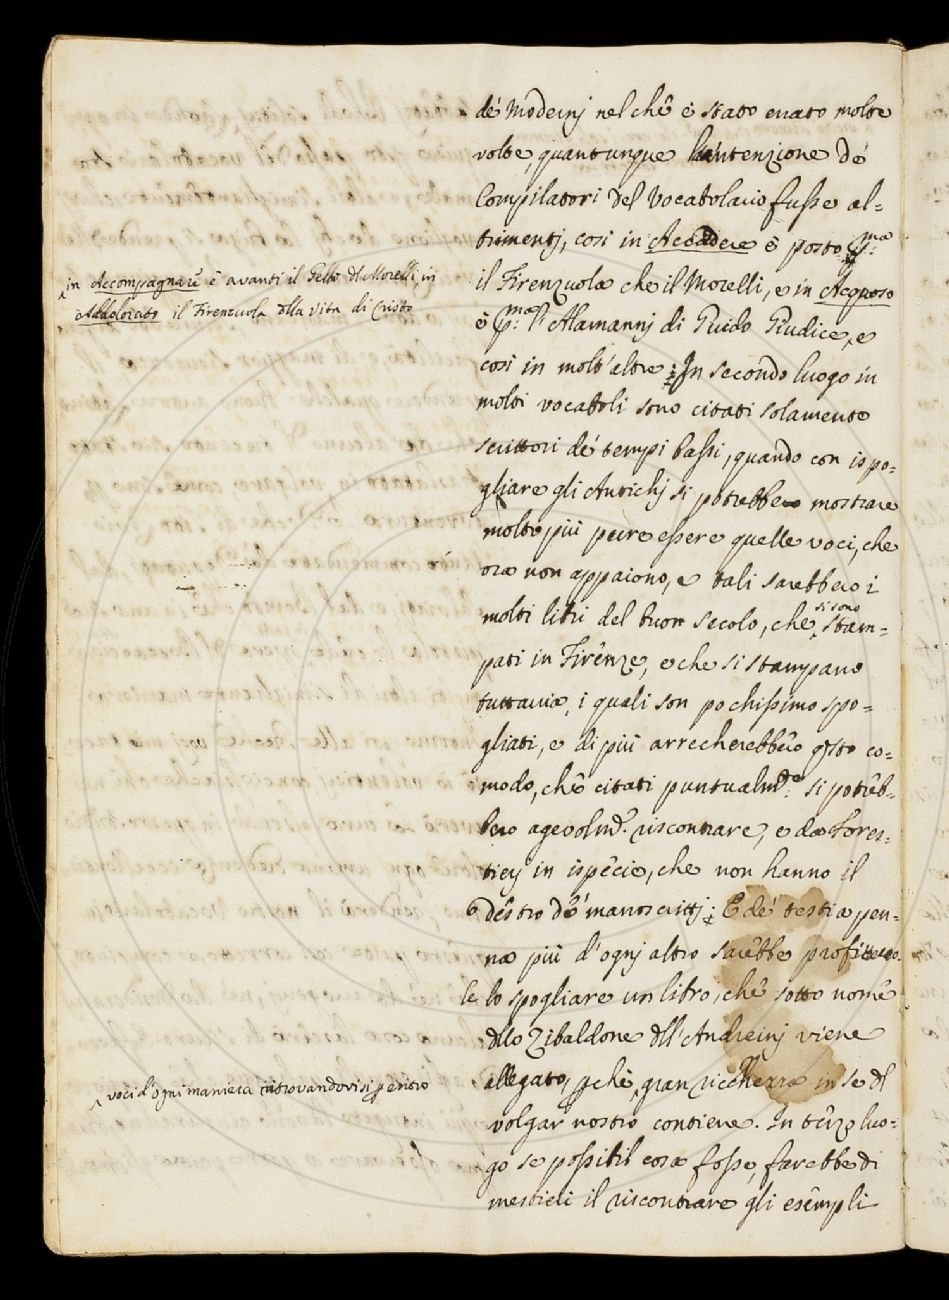 de' Moderni nel che è stato errato molte
volte, quantunque l'intenzione de'
Compilatori del Vocabolario fusse al=
trimentj, così in Accadere è posto pma:
il Firenzuola che il Morelli, e in Acquoso
è pma: l'Alamannj di Guido Giudice, e
così in molt'altre; In secondo luogo in
molti vocaboli sono citati solamente
scrittori de' tempi bassi, quando con ispo=
gliare gli Antichj si potrebbero mostrare
molto più pure essere quelle voci, che
ora non appaiono, e tali sarebbero i
molti libri del buon secolo, che si sono stam=
pati in Firenze, e che si stampano
tuttavia, i quali son pochissimo spo=
gliati, e di più arrecherebbero qsto co=
modo, che citati puntualmde: si potreb=
bero agevolmd. riscontrare, e da Fores=
tierj in ispecie, che non hanno il
destro de' manoscrittj; E de' testi a pen=
na più d'ognj altro sarebbe profittevo=
le lo spogliare un libro, che sotto nome
dllo Zibaldone dll'Andreinj viene
allegato, pchè gran ricchezza in se dl
volgar nostro contiene. In terzo luo=
go se possibil cosa fosse, farebbe di
mestieri il riscontrare gli esempli
in Accompagnare è avanti il Gello dl Morelli, in
Addolorato il Firenzuola alla Vita di Cristo
voci d'ogni maniera ritrovandovisi, e perciò